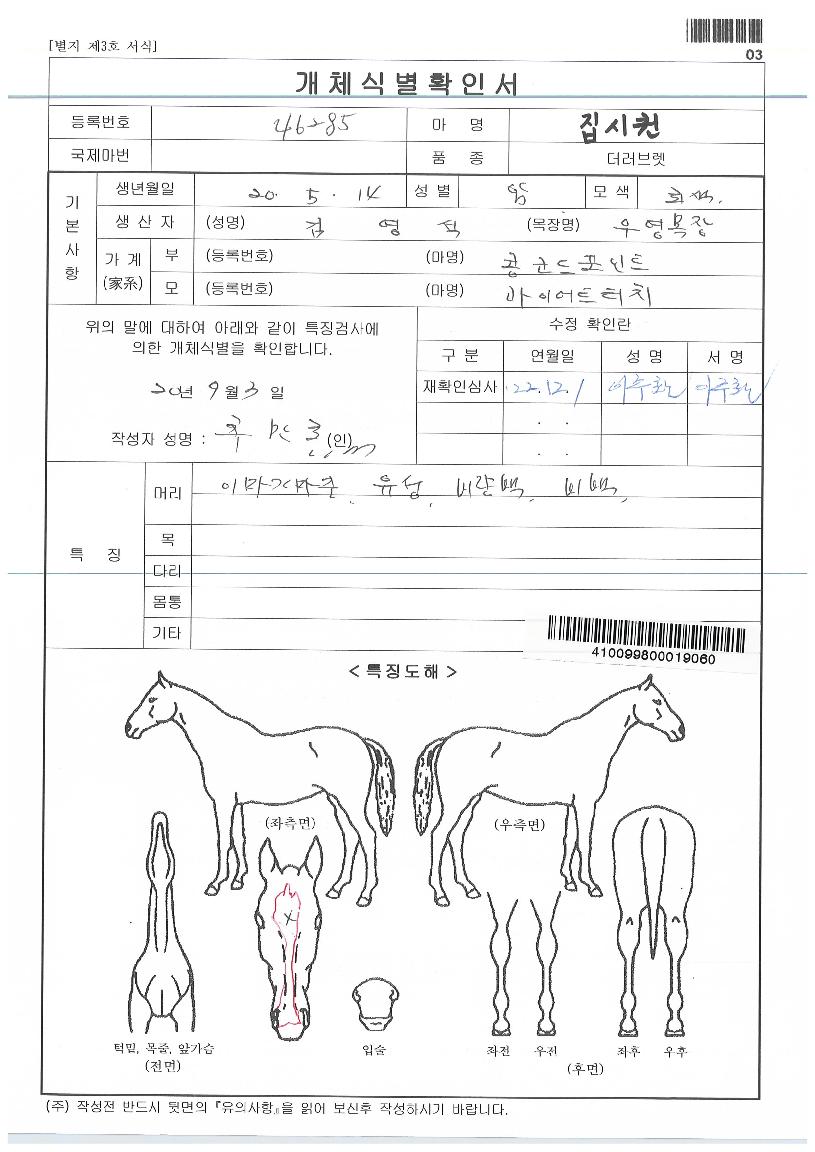 [별지 제3호 서식]
03
개체식별확인서
등록번호 46285 마 명 집시퀸
국제마번 품 종 더러브렛
기본사항
생년월일 20. 5. 14 성 별 암 모 색 회색.
생 산 자 (성명) 김 영 석 (목장명) 우영목장
가 계 (家系) 부 (등록번호) (마명) 콩코드포인트
모 (등록번호) (마명)
위의 말에 대하여 아래와 같이 특징검사에
의한 개체식별을 확인합니다.
20년 9월 3일
작성자 성명 : (인)
수정 확인란
구 분 연월일 성 명 서 명
재확인심사 22.12.1
. .
. .
특 징
머리 이마가마중, 유성, 비량백, 비백,
목
다리
몸통
기타
410099800019060
< 특징도해 >
(좌측면) (우측면)
턱밑, 목줄, 앞가슴
(전면)
입술
좌전 우전 좌후 우후
(후면)
(주) 작성전 반드시 뒷면의 『유의사항』을 읽어 보신후 작성하시기 바랍니다.